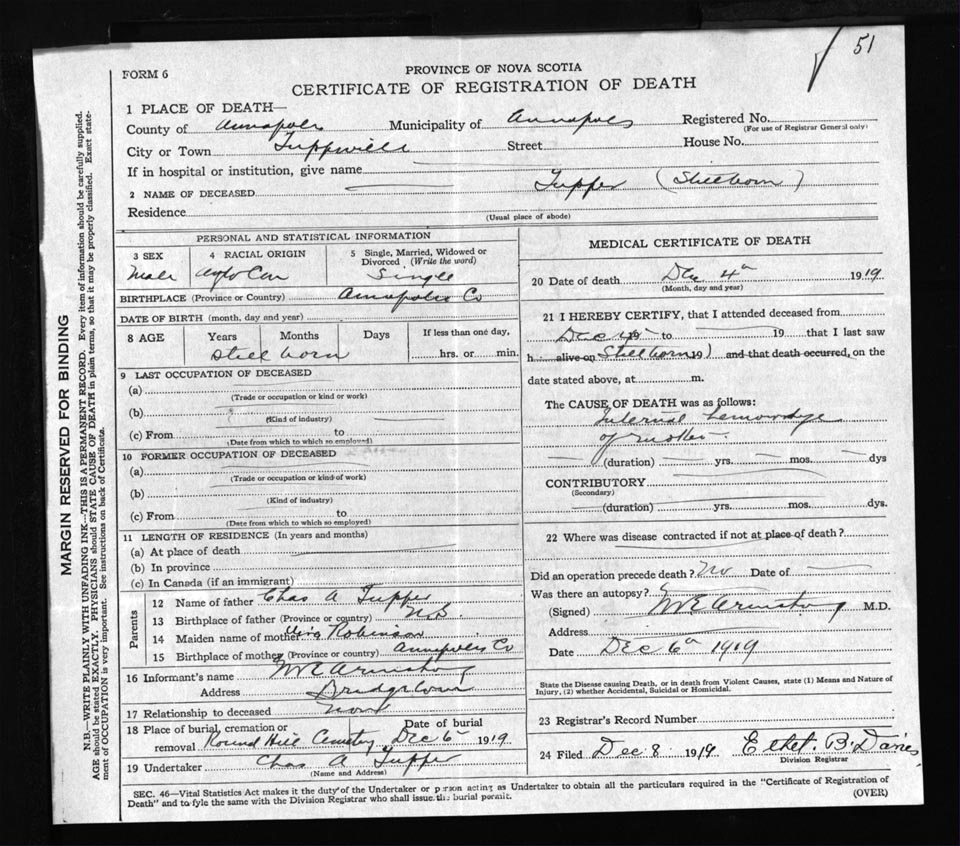 51
FORM 6
PROVINCE OF NOVA SCOTIA
CERTIFICATE OF REGISTRATION OF DEATH
1 PLACE OF DEATH—
County of Annapolis Municipality of Annapolis Registered No.
(For use of Registrar General only)
City or Town Tuppville Street House No.
If in hospital or institution, give name
2 NAME OF DECEASED Tupper (Stillborn)
Residence
(Usual place of abode)
PERSONAL AND STATISTICAL INFORMATION
3 SEX 4 RACIAL ORIGIN 5 Single, Married, Widowed or Divorced (Write the word)
Male Single
BIRTHPLACE (Province or Country) Annapolis Co
DATE OF BIRTH (month, day and year)
8 AGE Years Months Days If less than one day,
Still born hrs. or min.
9 LAST OCCUPATION OF DECEASED
(a)
(Trade or occupation or kind or work)
(b)
(Kind of industry)
(c) From to
(Date from which to which so employed)
10 FORMER OCCUPATION OF DECEASED
(a)
(Trade or occupation or kind of work)
(b)
(Kind of industry)
(c) From to
(Date from which to which so employed)
11 LENGTH OF RESIDENCE (In years and months)
(a) At place of death
(b) In province
(c) In Canada (if an immigrant)
Parents
12 Name of father Chas A Tupper
13 Birthplace of father (Province or country) N.S.
14 Maiden name of mother Robinson
15 Birthplace of mother (Province or country) Annapolis Co
16 Informant's name M E Armstrong
Address Bridgetown
17 Relationship to deceased non
18 Place of burial, cremation or removal Round Hill Cemetery Date of burial Dec 6 1919
19 Undertaker Chas A Tupper
(Name and Address)
MEDICAL CERTIFICATE OF DEATH
20 Date of death Dec 4th 1919
(Month, day and year)
21 I HEREBY CERTIFY, that I attended deceased from
Dec 4 19 to 19 that I last saw
h alive on Stillborn 19 ) and that death occurred, on the
date stated above, at m.
The CAUSE OF DEATH was as follows:
Internal hemorrhage
of mother
(duration) yrs. mos. dys
CONTRIBUTORY
(Secondary)
(duration) yrs. mos. dys.
22 Where was disease contracted if not at place of death?
Did an operation precede death? No Date of
Was there an autopsy?
(Signed) M E Armstrong M.D.
Address
Date Dec 6th 1919
State the Disease causing Death, or in death from Violent Causes, state (1) Means and Nature of
Injury, (2) whether Accidental, Suicidal or Homicidal.
23 Registrar's Record Number
24 Filed Dec 8 1919 Ethel B. Davies
Division Registrar
SEC. 46—Vital Statistics Act makes it the duty of the Undertaker or person acting as Undertaker to obtain all the particulars required in the "Certificate of Registration of
Death" and to fyle the same with the Division Registrar who shall issue the burial permit.
(OVER)
MARGIN RESERVED FOR BINDING
N.B.—WRITE PLAINLY WITH UNFADING INK—THIS IS A PERMANENT RECORD. Every item of information should be carefully supplied.
AGE should be stated EXACTLY. PHYSICIANS should STATE CAUSE OF DEATH in plain terms, so that it may be properly classified. Exact state-
ment of OCCUPATION is very important. See instructions on back of Certificate.